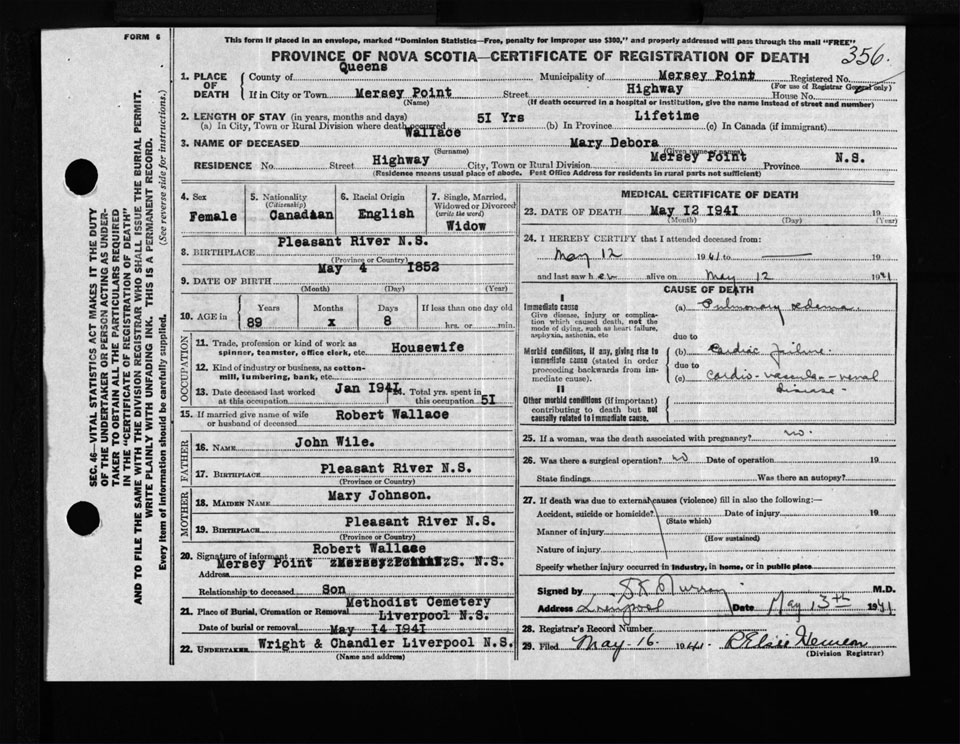 FORM 6
This form if placed in an envelope, marked "Dominion Statistics—Free, penalty for improper use $300," and properly addressed will pass through the mail "FREE"
PROVINCE OF NOVA SCOTIA—CERTIFICATE OF REGISTRATION OF DEATH
356.
SEC. 46—VITAL STATISTICS ACT MAKES IT THE DUTY
OF THE UNDERTAKER OR PERSON ACTING AS UNDER-
TAKER TO OBTAIN ALL THE PARTICULARS REQUIRED
IN THE "CERTIFICATE OF REGISTRATION OF DEATH"
AND TO FILE THE SAME WITH THE DIVISION REGISTRAR WHO SHALL ISSUE THE BURIAL PERMIT.
WRITE PLAINLY WITH UNFADING INK. THIS IS A PERMANENT RECORD.
Every item of information should be carefully supplied. (See reverse side for instructions.)
1. PLACE OF DEATH
County of Queens Municipality of Mersey Point Registered No.
(For use of Registrar General only)
If in City or Town Mersey Point Street Highway House No.
(Name) (If death occurred in a hospital or institution, give the name instead of street and number)
2. LENGTH OF STAY (in years, months and days)
(a) In City, Town or Rural Division where death occurred 5I Yrs (b) In Province Lifetime (c) In Canada (if immigrant)
3. NAME OF DECEASED Wallace Mary Debora
(Surname) (Given name or names)
RESIDENCE No. Street Highway City, Town or Rural Division Mersey Point Province N.S.
(Residence means usual place of abode. Post Office Address for residents in rural parts not sufficient)
4. Sex Female
5. Nationality (Citizenship) Canadian
6. Racial Origin English
7. Single, Married, Widowed or Divorced (write the word) Widow
8. BIRTHPLACE Pleasant River N.S.
(Province or Country)
9. DATE OF BIRTH May 4 I852
(Month) (Day) (Year)
10. AGE in Years 89 Months x Days 8 If less than one day old hrs. or min.
OCCUPATION
11. Trade, profession or kind of work as spinner, teamster, office clerk, etc. Housewife
12. Kind of industry or business, as cotton-mill, lumbering, bank, etc.
13. Date deceased last worked at this occupation Jan I94I 14. Total yrs. spent in this occupation 5I
15. If married give name of wife or husband of deceased Robert Wallace
FATHER
16. NAME John Wile.
17. BIRTHPLACE Pleasant River N.S.
(Province or Country)
MOTHER
18. MAIDEN NAME Mary Johnson.
19. BIRTHPLACE Pleasant River N.S.
(Province or Country)
20. Signature of informant Robert Wallace
Address Mersey Point N.S.
Relationship to deceased Son
21. Place of Burial, Cremation or Removal Methodist Cemetery Liverpool N.S.
Date of burial or removal May I4 I94I
22. UNDERTAKER Wright & Chandler Liverpool N.S.
(Name and address)
MEDICAL CERTIFICATE OF DEATH
23. DATE OF DEATH May I2 I94I 19
(Month) (Day) (Year)
24. I HEREBY CERTIFY that I attended deceased from:
May 12 1941 to
and last saw her alive on May 12 1941
CAUSE OF DEATH
I
Immediate cause
Give disease, injury or complication which caused death, not the mode of dying, such as heart failure, asphyxia, asthenia, etc
(a) Pulmonary edema
due to
Morbid conditions, if any, giving rise to immediate cause (stated in order proceeding backwards from immediate cause).
(b) Cardiac failure
due to
(c) Cardio-vascular-renal disease
II
Other morbid conditions (if important) contributing to death but not causally related to immediate cause.
25. If a woman, was the death associated with pregnancy? no.
26. Was there a surgical operation? no Date of operation 19
State findings Was there an autopsy?
27. If death was due to external causes (violence) fill in also the following:—
Accident, suicide or homicide? Date of injury 19
(State which)
Manner of injury
(How sustained)
Nature of injury
Specify whether injury occurred in industry, in home, or in public place
Signed by Murray M.D.
Address Liverpool Date May 13th 1941
28. Registrar's Record Number
29. Filed May 16 1941
(Division Registrar)